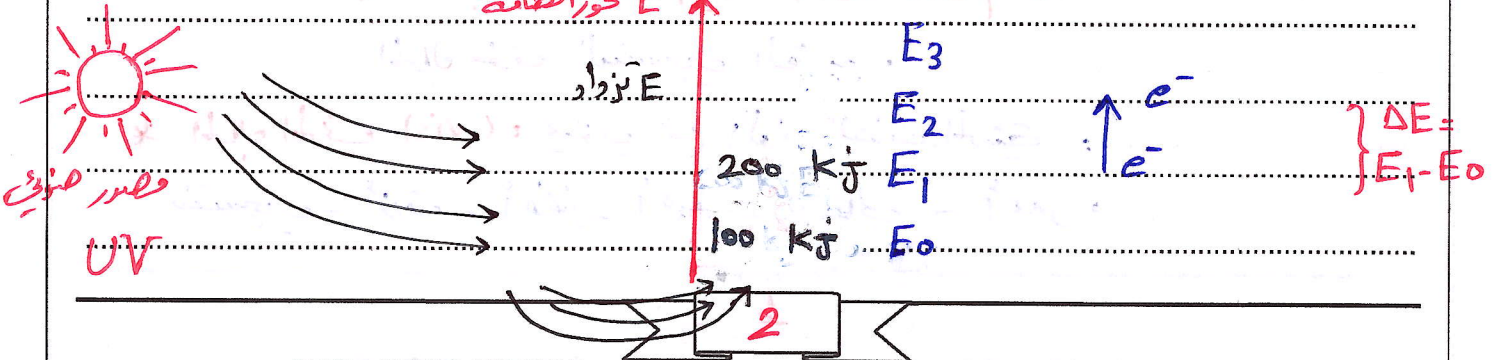 E محور الطاقة
E3
E تزداد
E2
e⁻
ΔE =
200 kj
E1
e⁻
E1-E0
مصدر ضوئي
UV
100 kj
E0
2